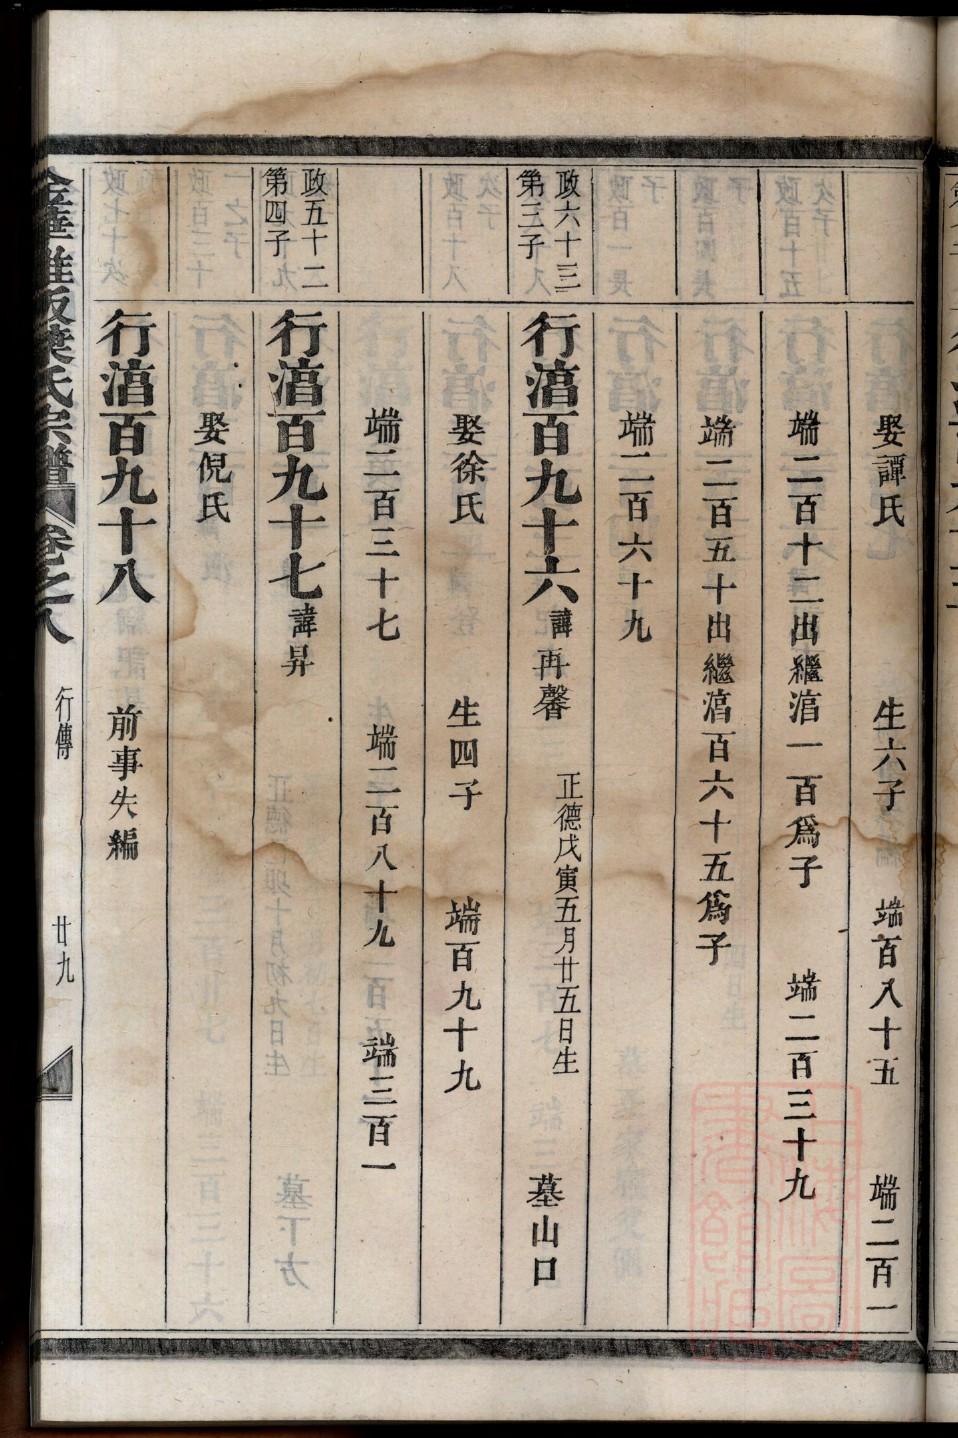 娶譚氏 生六子 端百八十五 端二百一
端二百十二出繼湻一百爲子 端二百三十九
端二百五十出繼湻百六十五爲子
端二百六十九
政六十三
第三子
行湻百九十六 諱再馨 正德戊寅五月廿五日生 墓山口
娶徐氏 生四子 端百九十九
端二百三十七 端二百八十九 端三百一
政五十二
第四子
行湻百九十七 諱昇
娶倪氏
行湻百九十八 前事失編
氏宗譜 卷之八 行傳 廿九